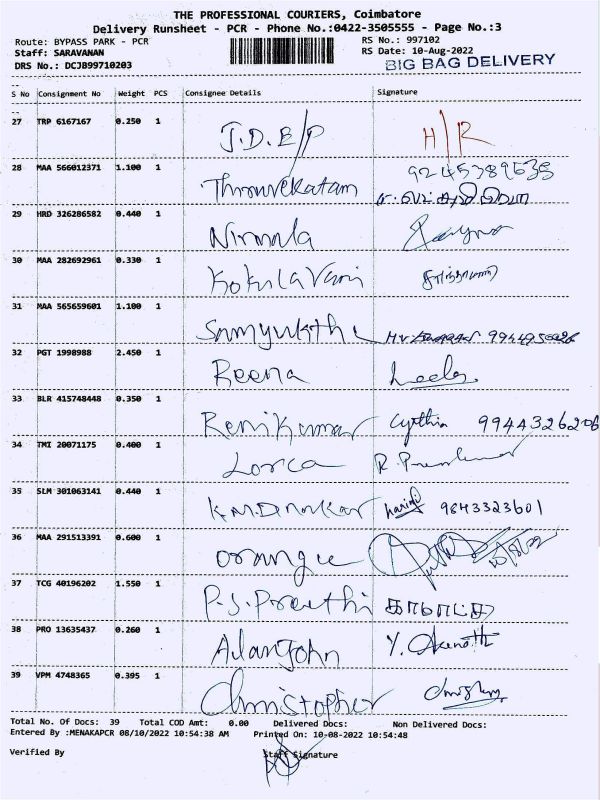 THE PROFESSIONAL COURIERS, Coimbatore
Delivery Runsheet - PCR - Phone No.:0422-3505555 - Page No.:3
Route: BYPASS PARK - PCR RS No.: 997102
Staff: SARAVANAN RS Date: 10-Aug-2022
DRS No.: DCJ899710203 BIG BAG DELIVERY
S No Consignment No Weight PCS Consignee Details Signature
27 TRP 6167167 0.250 1 J.D.E/P H/R
28 MAA 566012371 1.100 1 Thiruvekatam
29 HRD 326286582 0.440 1 Nirmala
30 MAA 282692961 0.330 1 KokilaVani
31 MAA 565659601 1.100 1 Samyuktha
32 PGT 1998988 2.450 1 Reena Leela
33 BLR 415748448 0.350 1 ReniKumar Cynthia 9944326206
34 TMI 20071175 0.400 1 Lorca
35 SLM 301063141 0.440 1 K.M.Dinakar 9843323601
36 MAA 291513391 0.600 1 orange
37 TCG 40196202 1.550 1 P.S.Preethi
38 PRO 13635437 0.260 1 AlanJohn
39 VPM 4748365 0.395 1 Christopher
Total No. Of Docs: 39 Total COD Amt: 0.00 Delivered Docs: Non Delivered Docs:
Entered By :MENAKAPCR 08/10/2022 10:54:38 AM Printed On: 10-08-2022 10:54:48
Verified By Staff Signature